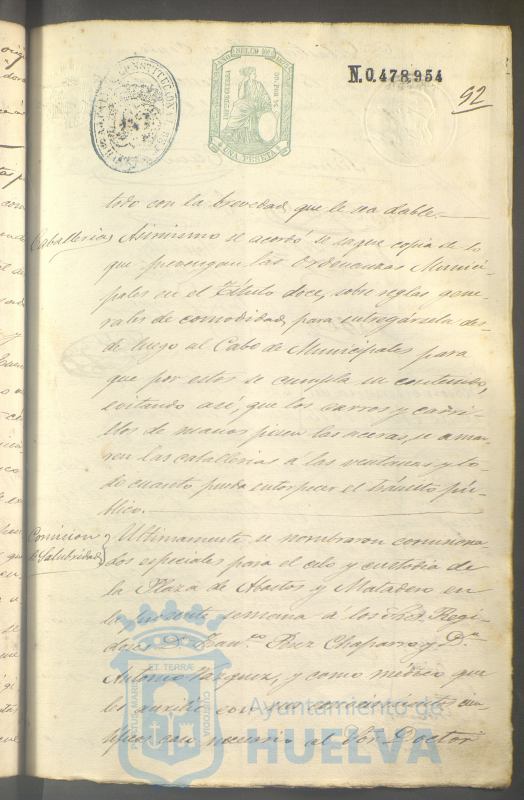 N.0.478,954
92
UNA PESETA
todo con la brevedad que le sea dable.
Caballerias Asimismo se acordó se saque copia de lo
que prevengan las Ordenanzas Munici-
pales en el Título doce, sobre reglas gene-
rales de comodidad, para entregársela des-
de luego al Cabo de Municipales para
que por estos se cumpla su contenido,
evitando así, que los carros y carri-
llos de manos pisen las aceras, se amar-
ren las caballerias a las ventanas y to-
do cuanto pueda entorpecer el tránsito pú-
blico.
Comision Ultimamente se nombraron comisiona-
de Salubridad dos especiales para el celo y custodia de
la Plaza de Abastos y Matadero en
la presente semana á los Sres Regi-
dores Dn Franco Perez Chaparro y Dn
Antonio Vazquez, y como médico que
les auxilie con sus conocimientos cien-
tíficos caso necesario al Sor Doctor
PORTUS MARIS ET TERRAE CUSTODIA
Ayuntamiento de
HUELVA